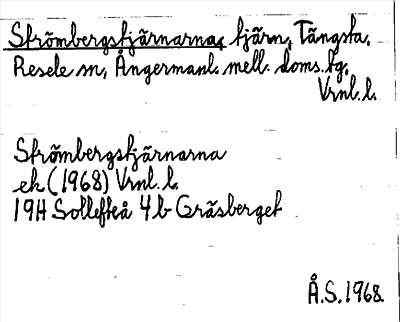 Strömbergstjärnarna, tjärn, Tängsta,
Resele sn, Ångermanl. mell. doms.fg,
Vrnl. l.
Strömbergstjärnarna
ek (1968) Vrnl. l.
19H Sollefteå 4 b Gräsberget
Å.S. 1968